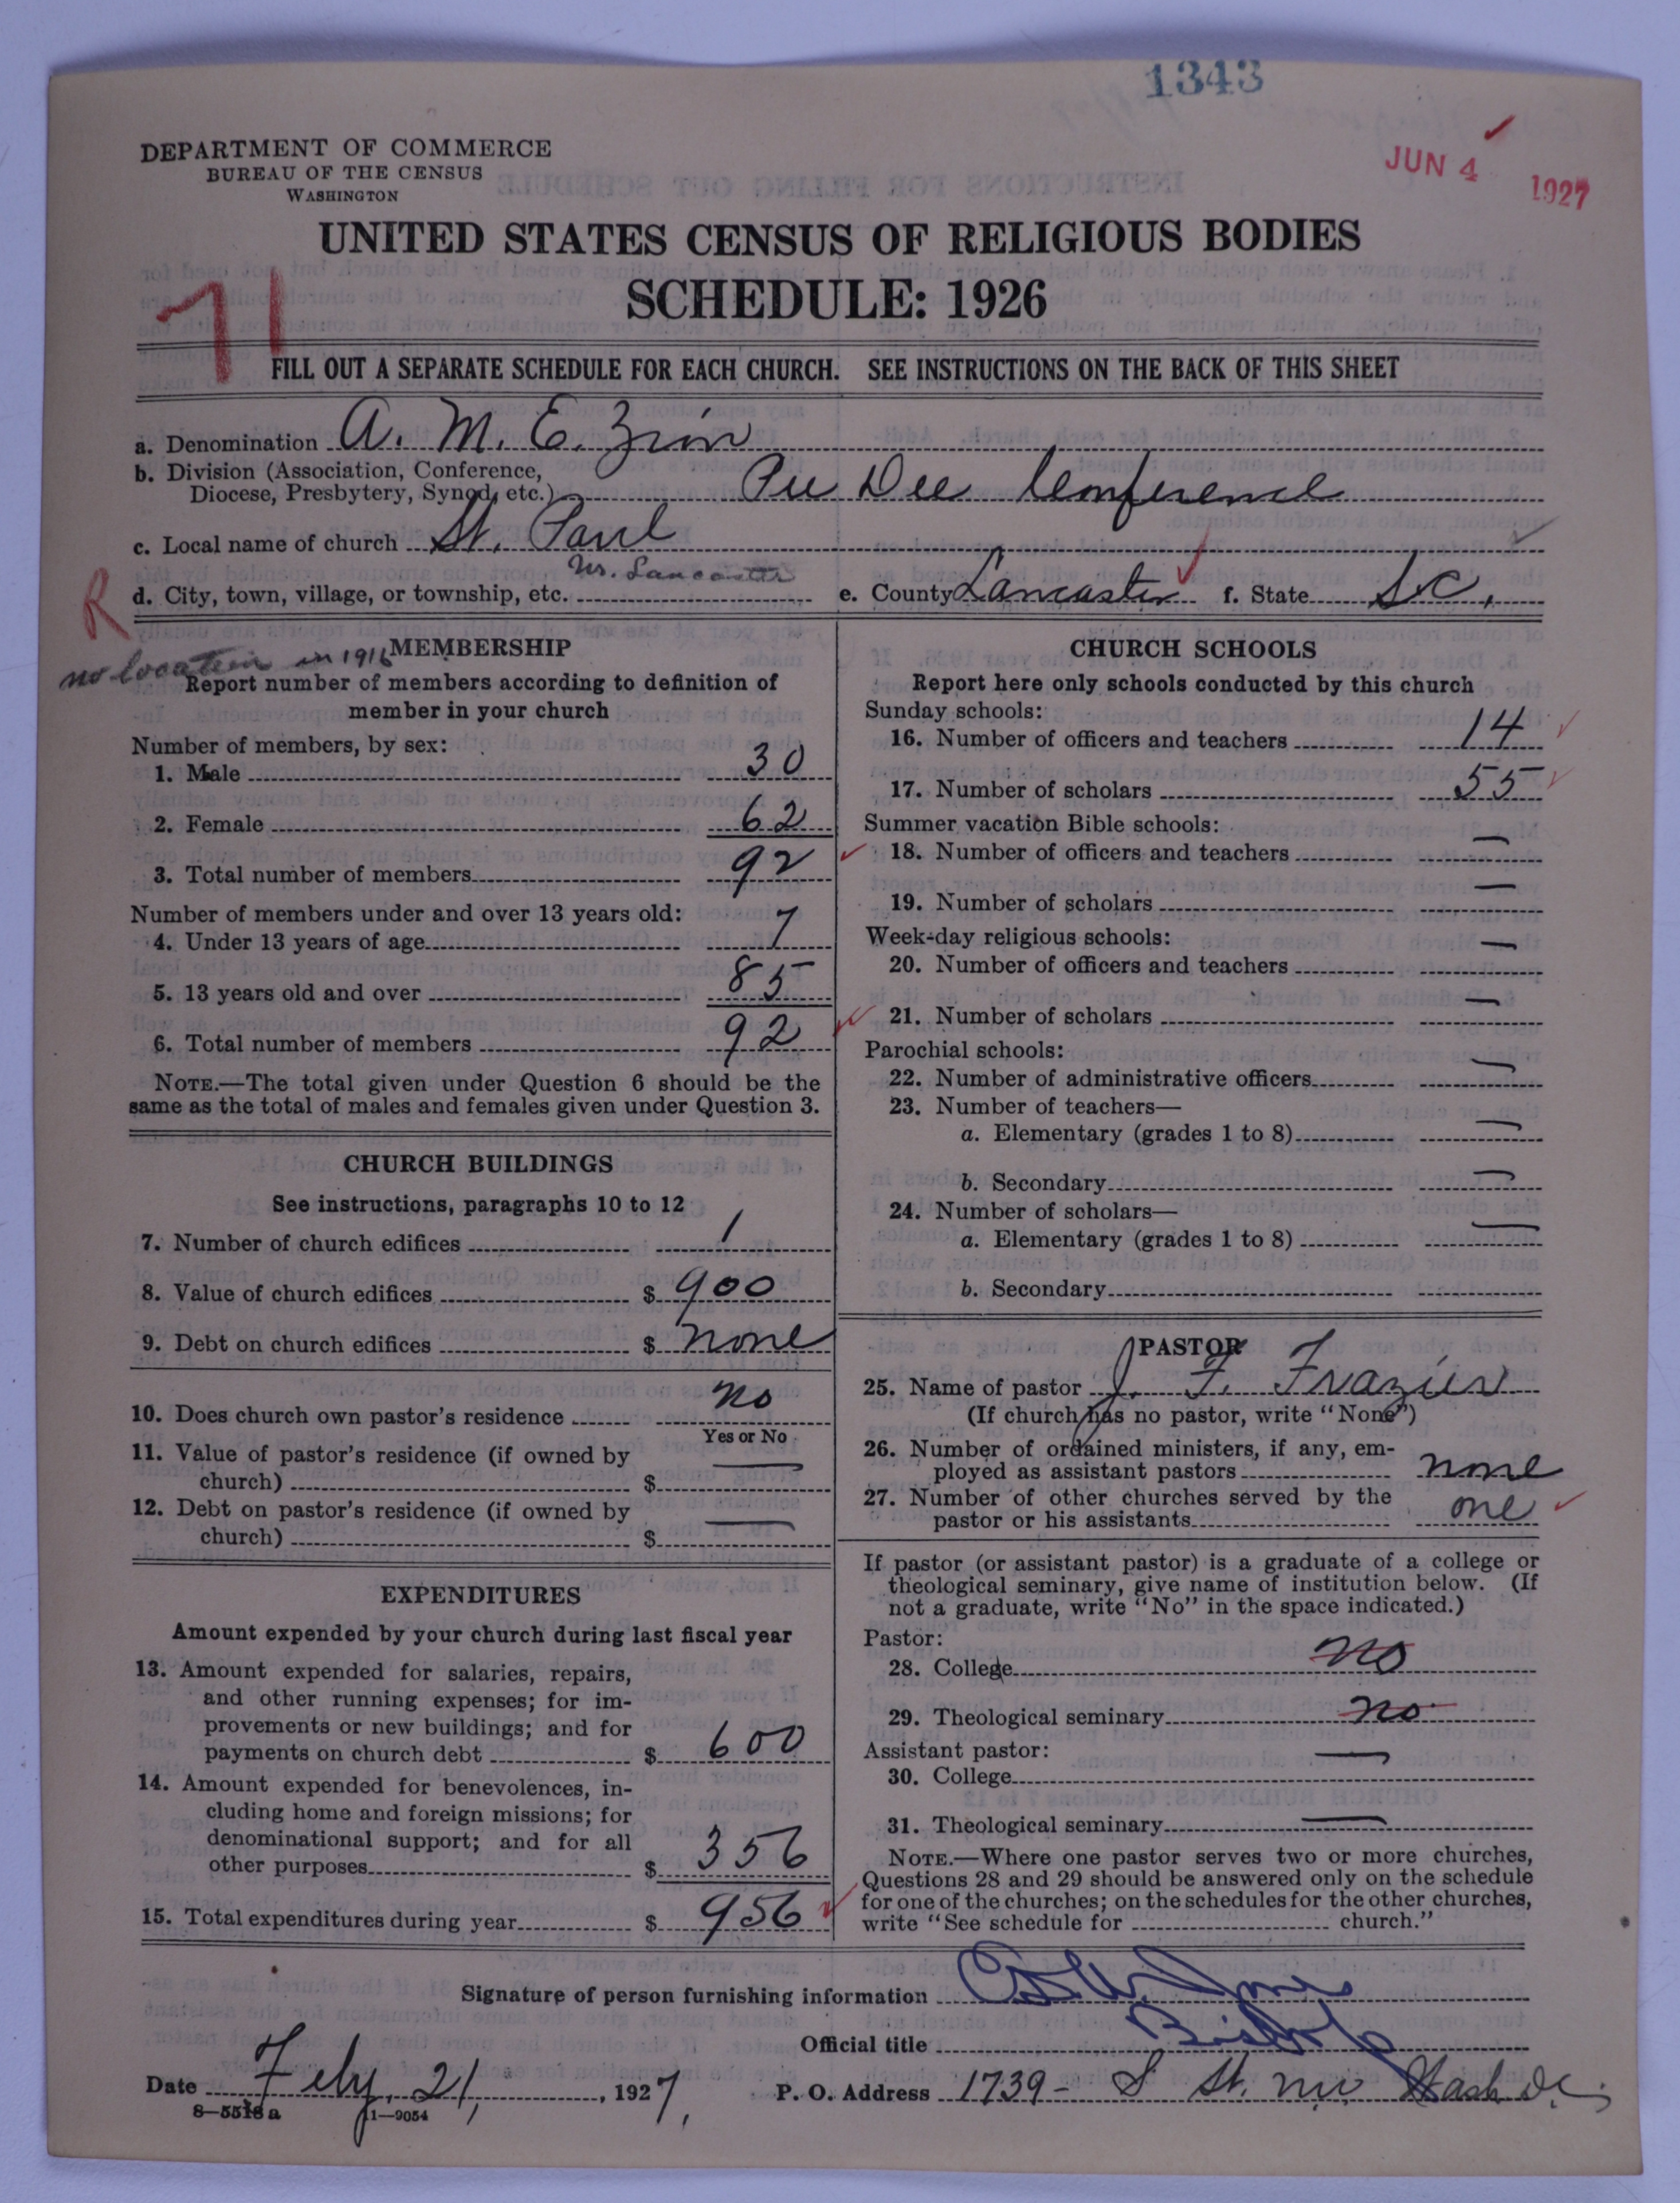 1343
JUN 4 1927
DEPARTMENT OF COMMERCE
BUREAU OF THE CENSUS
WASHINGTON
UNITED STATES CENSUS OF RELIGIOUS BODIES
SCHEDULE: 1926
71
FILL OUT A SEPARATE SCHEDULE FOR EACH CHURCH. SEE INSTRUCTIONS ON THE BACK OF THIS SHEET
a. Denomination A. M. E. Zion
b. Division (Association, Conference,
Diocese, Presbytery, Synod, etc.) Pee Dee Conference
c. Local name of church St. Paul
d. City, town, village, or township, etc. Nr. Lancaster e. County Lancaster f. State S.C.
R
no location in 1916
MEMBERSHIP
Report number of members according to definition of
member in your church
Number of members, by sex:
1. Male 30
2. Female 62
3. Total number of members 92
Number of members under and over 13 years old:
4. Under 13 years of age 7
5. 13 years old and over 85
6. Total number of members 92
NOTE.—The total given under Question 6 should be the
same as the total of males and females given under Question 3.
CHURCH BUILDINGS
See instructions, paragraphs 10 to 12
7. Number of church edifices 1
8. Value of church edifices $ 900
9. Debt on church edifices $ none
10. Does church own pastor's residence no
Yes or No
11. Value of pastor's residence (if owned by
church) $ —
12. Debt on pastor's residence (if owned by
church) $ —
EXPENDITURES
Amount expended by your church during last fiscal year
13. Amount expended for salaries, repairs,
and other running expenses; for im-
provements or new buildings; and for
payments on church debt $ 600
14. Amount expended for benevolences, in-
cluding home and foreign missions; for
denominational support; and for all
other purposes $ 356
15. Total expenditures during year $ 956
CHURCH SCHOOLS
Report here only schools conducted by this church
Sunday schools:
16. Number of officers and teachers 14
17. Number of scholars 55
Summer vacation Bible schools:
18. Number of officers and teachers —
19. Number of scholars —
Week-day religious schools:
20. Number of officers and teachers —
21. Number of scholars —
Parochial schools:
22. Number of administrative officers —
23. Number of teachers—
a. Elementary (grades 1 to 8) —
b. Secondary —
24. Number of scholars—
a. Elementary (grades 1 to 8) —
b. Secondary
PASTOR
25. Name of pastor J. F. Frazier
(If church has no pastor, write "None")
26. Number of ordained ministers, if any, em-
ployed as assistant pastors none
27. Number of other churches served by the
pastor or his assistants one
If pastor (or assistant pastor) is a graduate of a college or
theological seminary, give name of institution below. (If
not a graduate, write "No" in the space indicated.)
Pastor:
28. College no
29. Theological seminary no
Assistant pastor:
30. College —
31. Theological seminary —
NOTE.—Where one pastor serves two or more churches,
Questions 28 and 29 should be answered only on the schedule
for one of the churches; on the schedules for the other churches,
write "See schedule for church."
Signature of person furnishing information
Official title Bishop
Date Feby. 21, 1927, P. O. Address 1739- S St. NW Wash D.C.
8—5518 a 11—9054